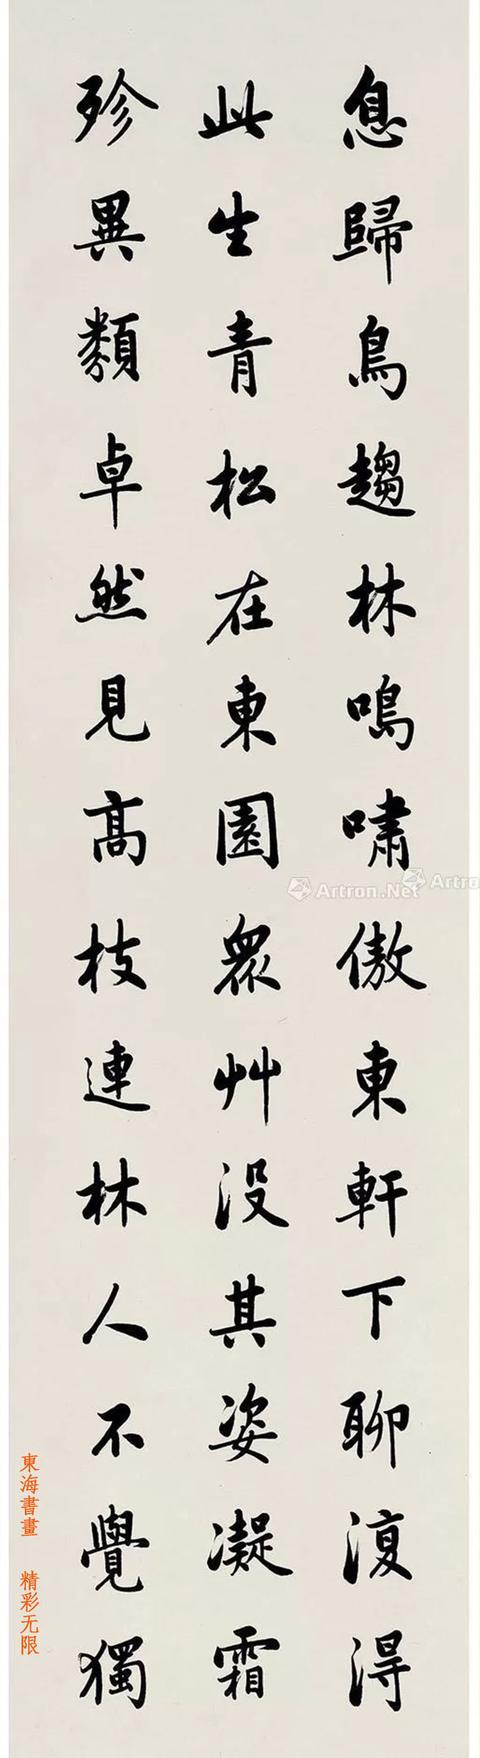 息歸鳥趨林鳴嘯傲東軒下聊復得
此生青松在東園眾艸沒其姿凝霜
殄異類卓然見高枝連林人不覺獨
東海書畫 精彩无限
Artron.Net
Artro